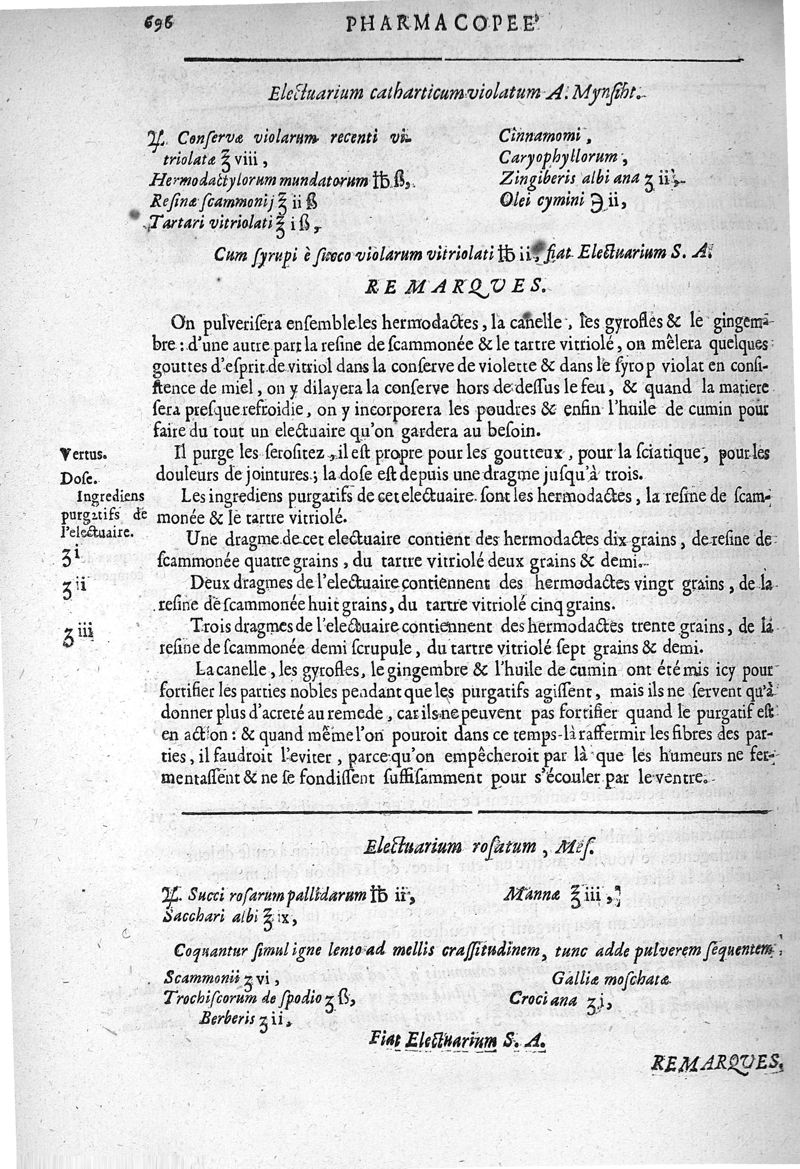 696 PHARMACOPEE
Electuarium catharticum violatum A. Mynsiht.
℞. Conservæ violarum recenti vi-
triolatæ ℥ viii,
Hermodactylorum mundatorum ℔ ß,
Resinæ scammonij ℥ ii ß
Tartari vitriolati ℥ i ß,
Cinnamomi,
Caryophyllorum,
Zingiberis albi ana ʒ ii,
Olei cymini ℈ ii,
Cum syrupi è succo violarum vitriolati ℔ ii, fiat Electuarium S. A.
REMARQUES.
On pulverisera ensemble les hermodactes, la canelle, les gyrofles & le gingem-
bre : d'une autre part la resine de scammonée & le tartre vitriolé, on mêlera quelques
gouttes d'esprit de vitriol dans la conserve de violette & dans le syrop violat en consi-
stence de miel, on y dilayera la conserve hors de dessus le feu, & quand la matiere
sera presque refroidie, on y incorporera les poudres & enfin l'huile de cumin pour
faire du tout un electuaire qu'on gardera au besoin.
Vertus.
Il purge les serositez, il est propre pour les goutteux, pour la sciatique, pour les
Dose.
douleurs de jointures ; la dose est depuis une dragme jusqu'à trois.
Ingrediens
purgatifs de
l'electuaire.
Les ingrediens purgatifs de cet electuaire sont les hermodactes, la resine de scam-
monée & le tartre vitriolé.
ʒi
Une dragme de cet electuaire contient des hermodactes dix grains, de resine de
scammonée quatre grains, du tartre vitriolé deux grains & demi.
ʒii
Deux dragmes de l'electuaire contiennent des hermodactes vingt grains, de la
resine de scammonée huit grains, du tartre vitriolé cinq grains.
ʒiii
Trois dragmes de l'electuaire contiennent des hermodactes trente grains, de la
resine de scammonée demi scrupule, du tartre vitriolé sept grains & demi.
La canelle, les gyrofles, le gingembre & l'huile de cumin ont été mis icy pour
fortifier les parties nobles pendant que les purgatifs agissent, mais ils ne servent qu'à
donner plus d'acreté au remede, car ils ne peuvent pas fortifier quand le purgatif est
en action : & quand même l'on pouroit dans ce temps-là raffermir les fibres des par-
ties, il faudroit l'eviter, parce qu'on empêcheroit par là que les humeurs ne fer-
mentassent & ne se fondissent suffisamment pour s'écouler par le ventre.
Electuarium rosatum, Mes.
℞. Succi rosarum pallidarum ℔ ii,
Sacchari albi ℥ ix,
Mannæ ℥ iii,
Coquantur simul igne lento ad mellis crassitudinem, tunc adde pulverem sequentem
Scammonii ʒ vi,
Trochiscorum de spodio ʒ ß,
Berberis ʒ ii,
Galliæ moschatæ
Croci ana ʒ j,
Fiat Electuarium S. A.
REMARQUES.